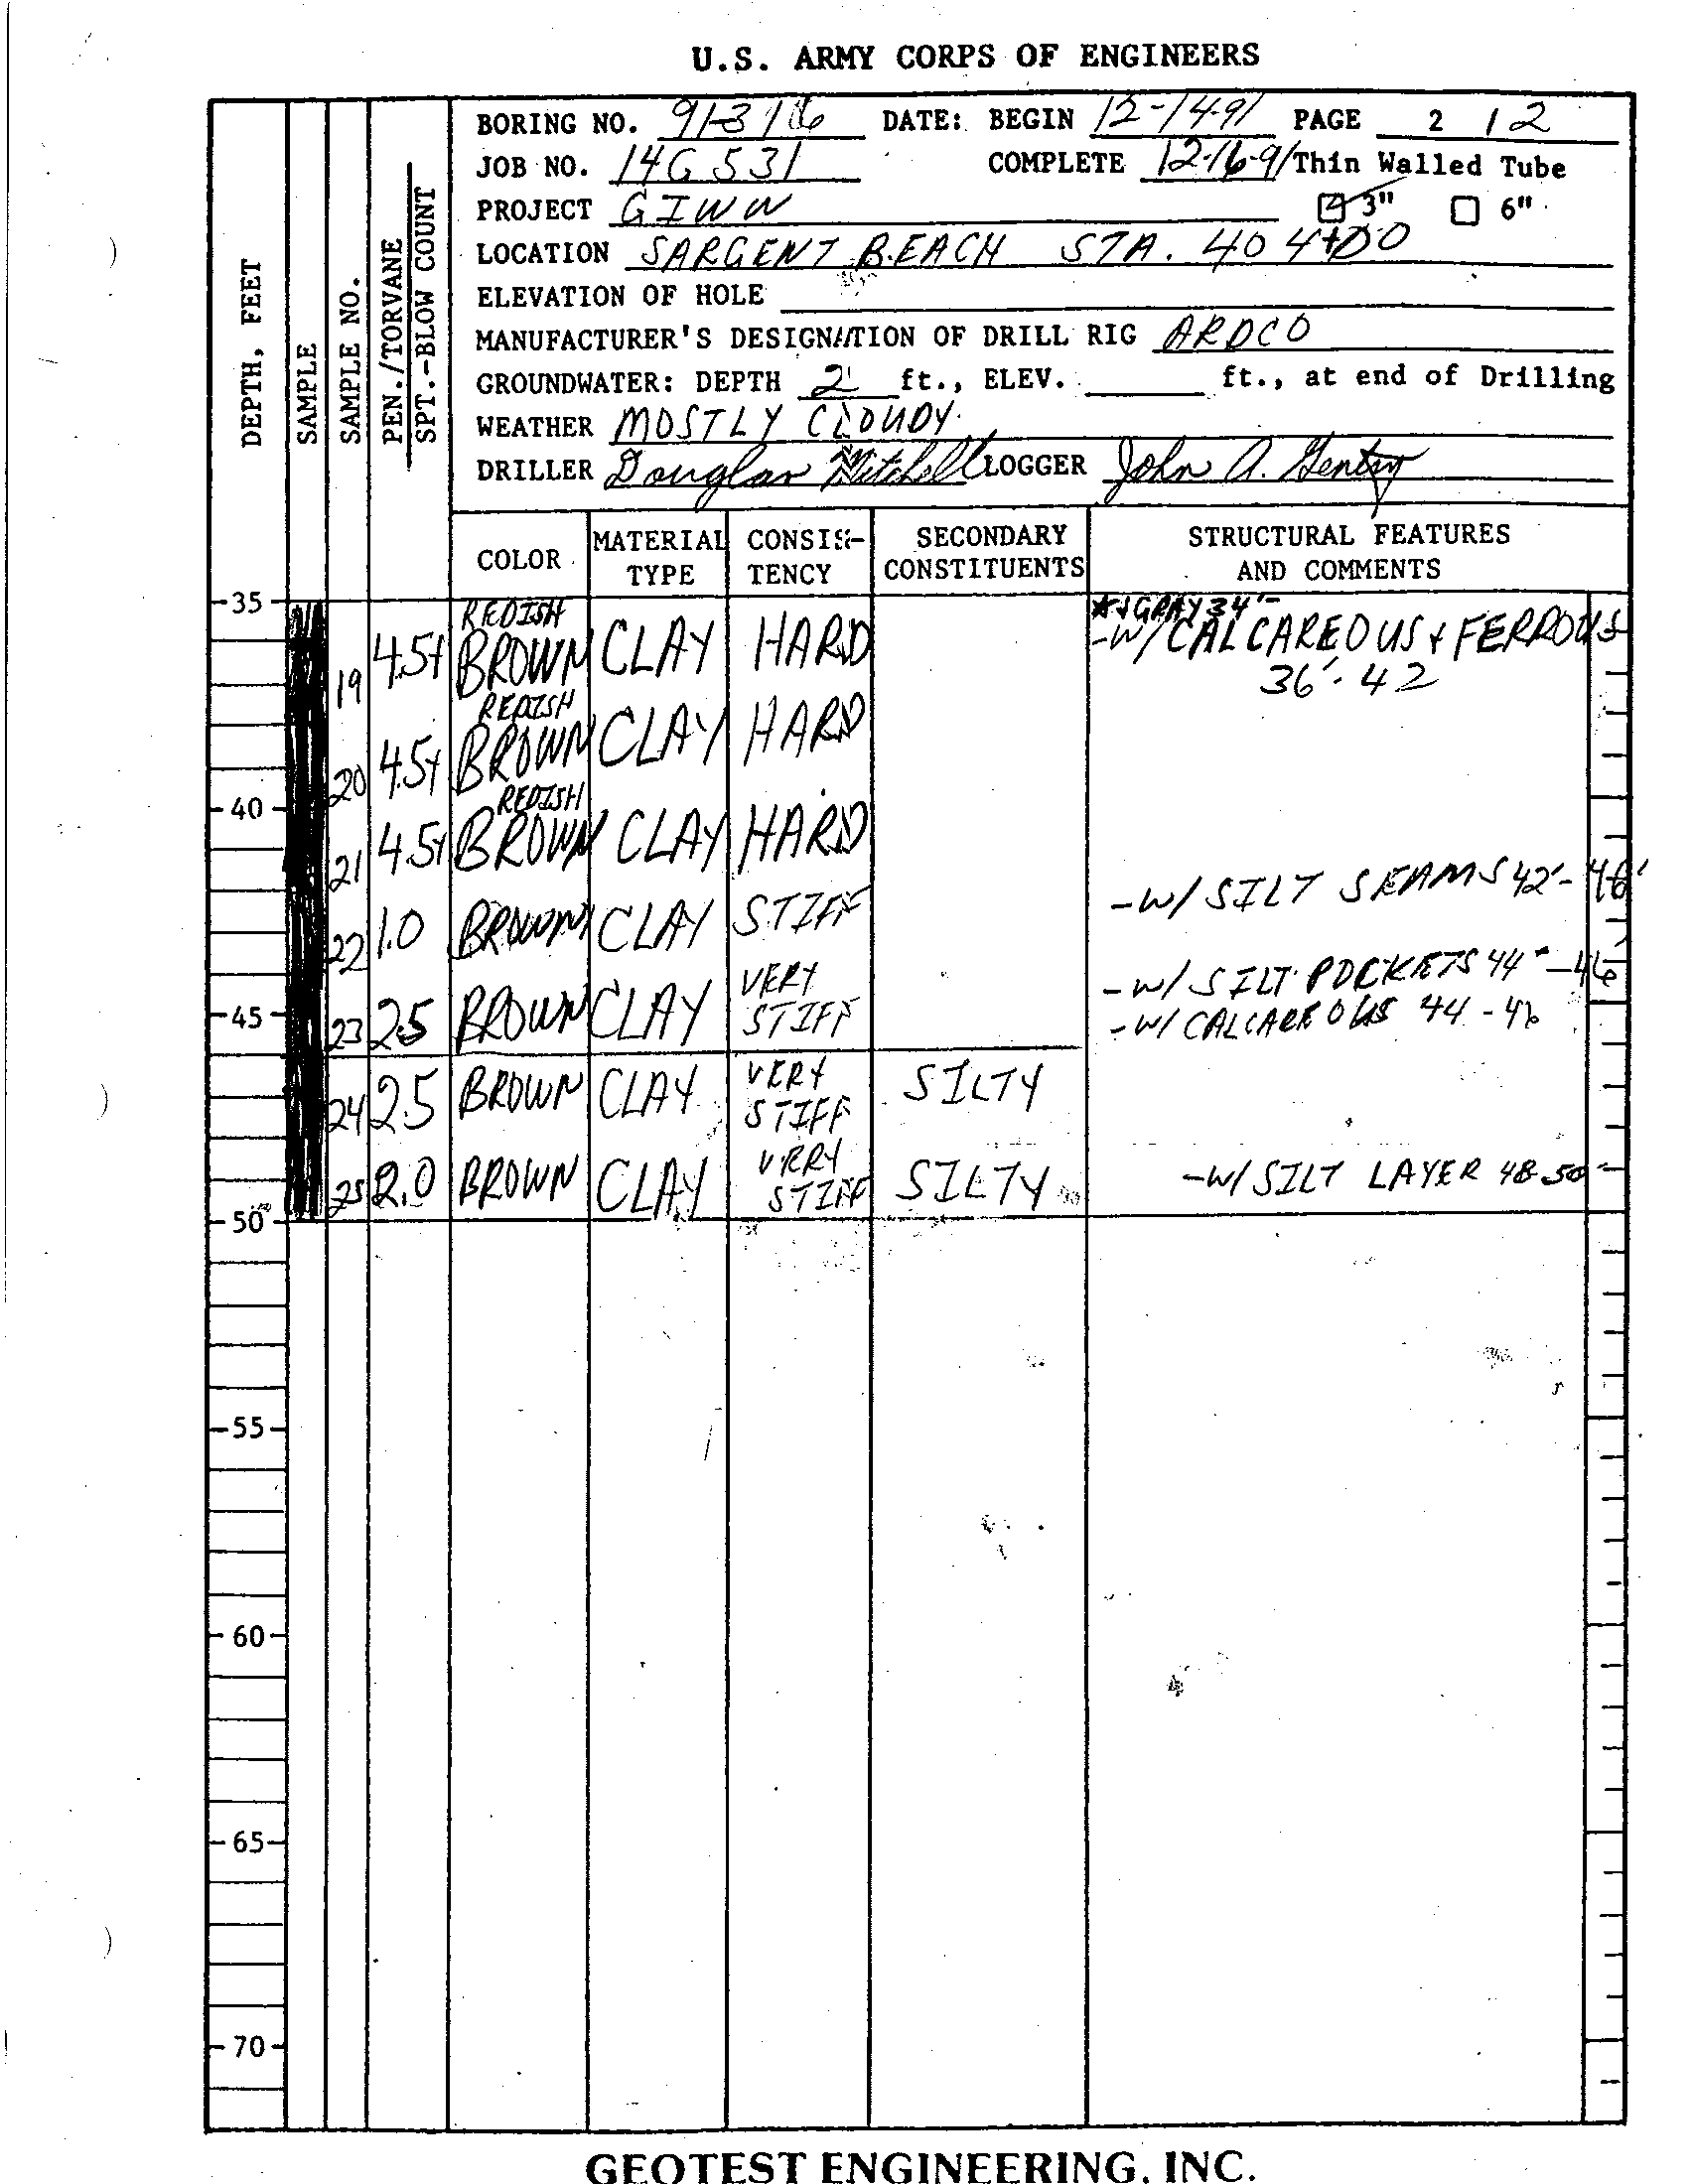 U.S. ARMY CORPS OF ENGINEERS
BORING NO. 91-316 DATE: BEGIN 12-14-91 PAGE 2 / 2
JOB NO. 14G531 COMPLETE 12-16-91 Thin Walled Tube
PROJECT GIWW 3" 6"
LOCATION SARGENT BEACH STA. 404+00
ELEVATION OF HOLE
MANUFACTURER'S DESIGNATION OF DRILL RIG ARDCO
GROUNDWATER: DEPTH 2' ft., ELEV. ft., at end of Drilling
WEATHER MOSTLY CLOUDY
DRILLER Douglas Mitchell LOGGER John A. Gentry
DEPTH, FEET
SAMPLE
SAMPLE NO.
PEN./TORVANE
SPT.-BLOW COUNT
COLOR MATERIAL TYPE CONSIS-TENCY SECONDARY CONSTITUENTS STRUCTURAL FEATURES AND COMMENTS
35 REDISH +GRAY 34'-
19 4.5+ BROWN CLAY HARD -W/CALCAREOUS + FERROUS
36'-42
REDISH
20 4.5+ BROWN CLAY HARD
40 REDISH
21 4.5+ BROWN CLAY HARD
-W/ SILT SEAMS 42'-46'
22 1.0 BROWN CLAY STIFF
-W/ SILT POCKETS 44'-46'
45 23 2.5 BROWN CLAY VERY STIFF -W/ CALCAREOUS 44-46
24 2.5 BROWN CLAY VERY STIFF SILTY
25 2.0 BROWN CLAY VERY STIFF SILTY -W/ SILT LAYER 48-50'
50
55
60
65
70
GEOTEST ENGINEERING, INC.